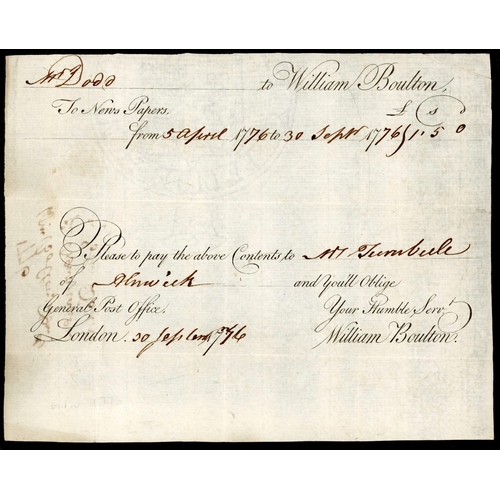 Mr Dodd to William Boulton,
To News Papers, £ s d
from 5 April 1776 to 30 Septr 1776 } 1. 5 0
Please to pay the above Contents, to Mr Turnbull
of Alnwick and You'll Oblige
General Post Office, Your Humble Servt
London. 30 Septemr 1776 William Boulton.